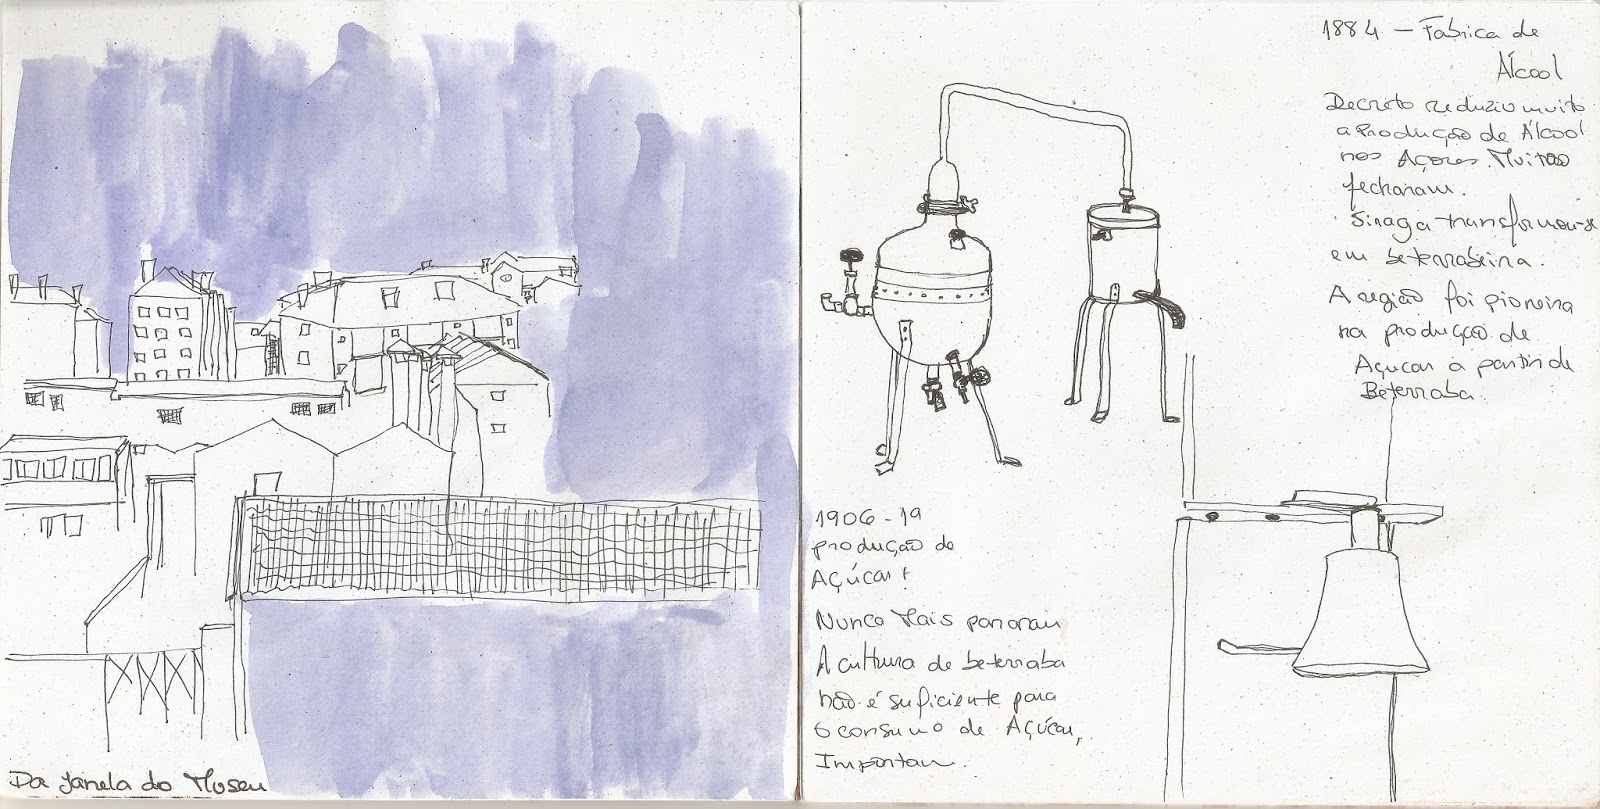 Da Janela do Museu
1884 - Fabrica de
Álcool
Decreto reduziu muito
a Produção de Álcool
nos Açores. Muitas
fecharam.
Sinaga transformou-se
em beterrabeira.
A região foi pioneira
na produção de
Açucar a partir de
Beterraba.
1906 - 1ª
produção de
Açúcar!
Nunca Mais pararam
A cultura de beterraba
não é suficiente para
o consumo de Açúcar,
Importam.